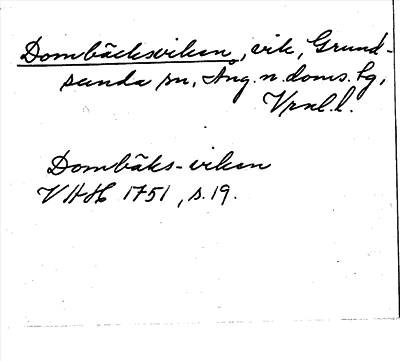 Dombäcksviken, vik, Grund-
sunda sn, Ång. n. doms. tg,
Vrnl. l.
Dombäks-viken
VHH 1751, s. 19.